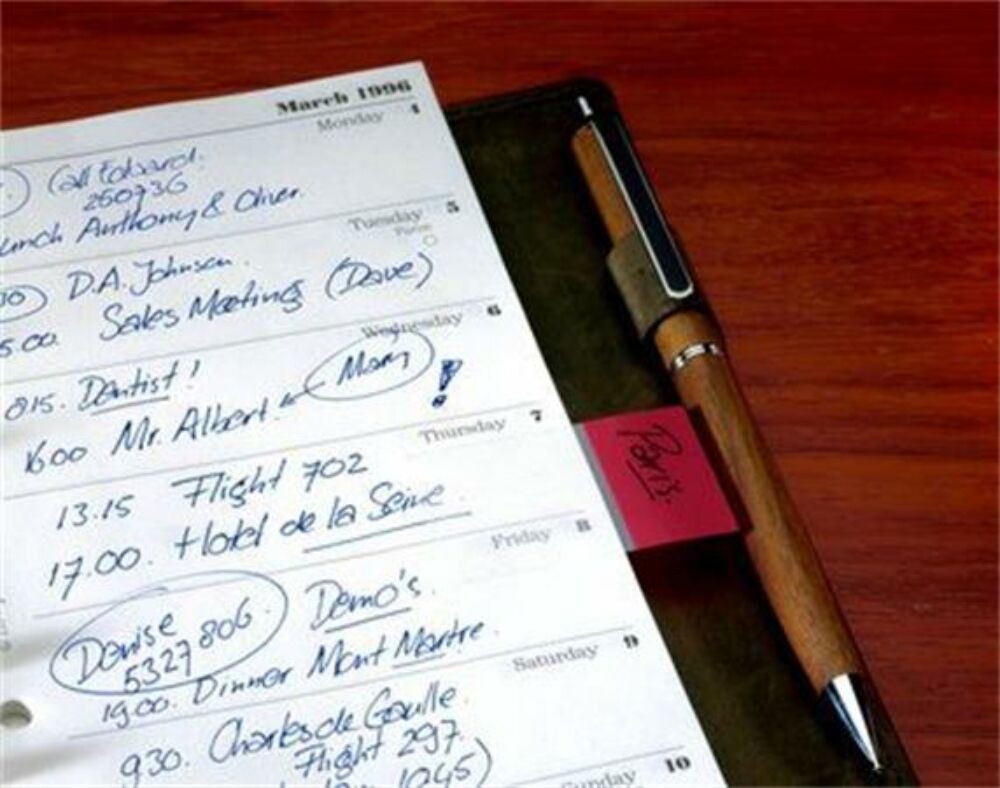 March 1996
Monday 4
Call Edward.
250736
Lunch Anthony & Oliver.
Tuesday 5
D.A. Johnson.
5.00. Sales Meeting (Dave)
Wednesday 6
815. Dentist!
1600 Mr. Albert Mary !
Thursday 7
13.15 Flight 702
17.00. Hotel de la Seine.
Paris.
Friday 8
Denise Demo's.
5327806.
19.00. Dinner Mont Martre.
Saturday 9
930. Charles de Gaulle.
Flight 297.
1045)
Sunday 10